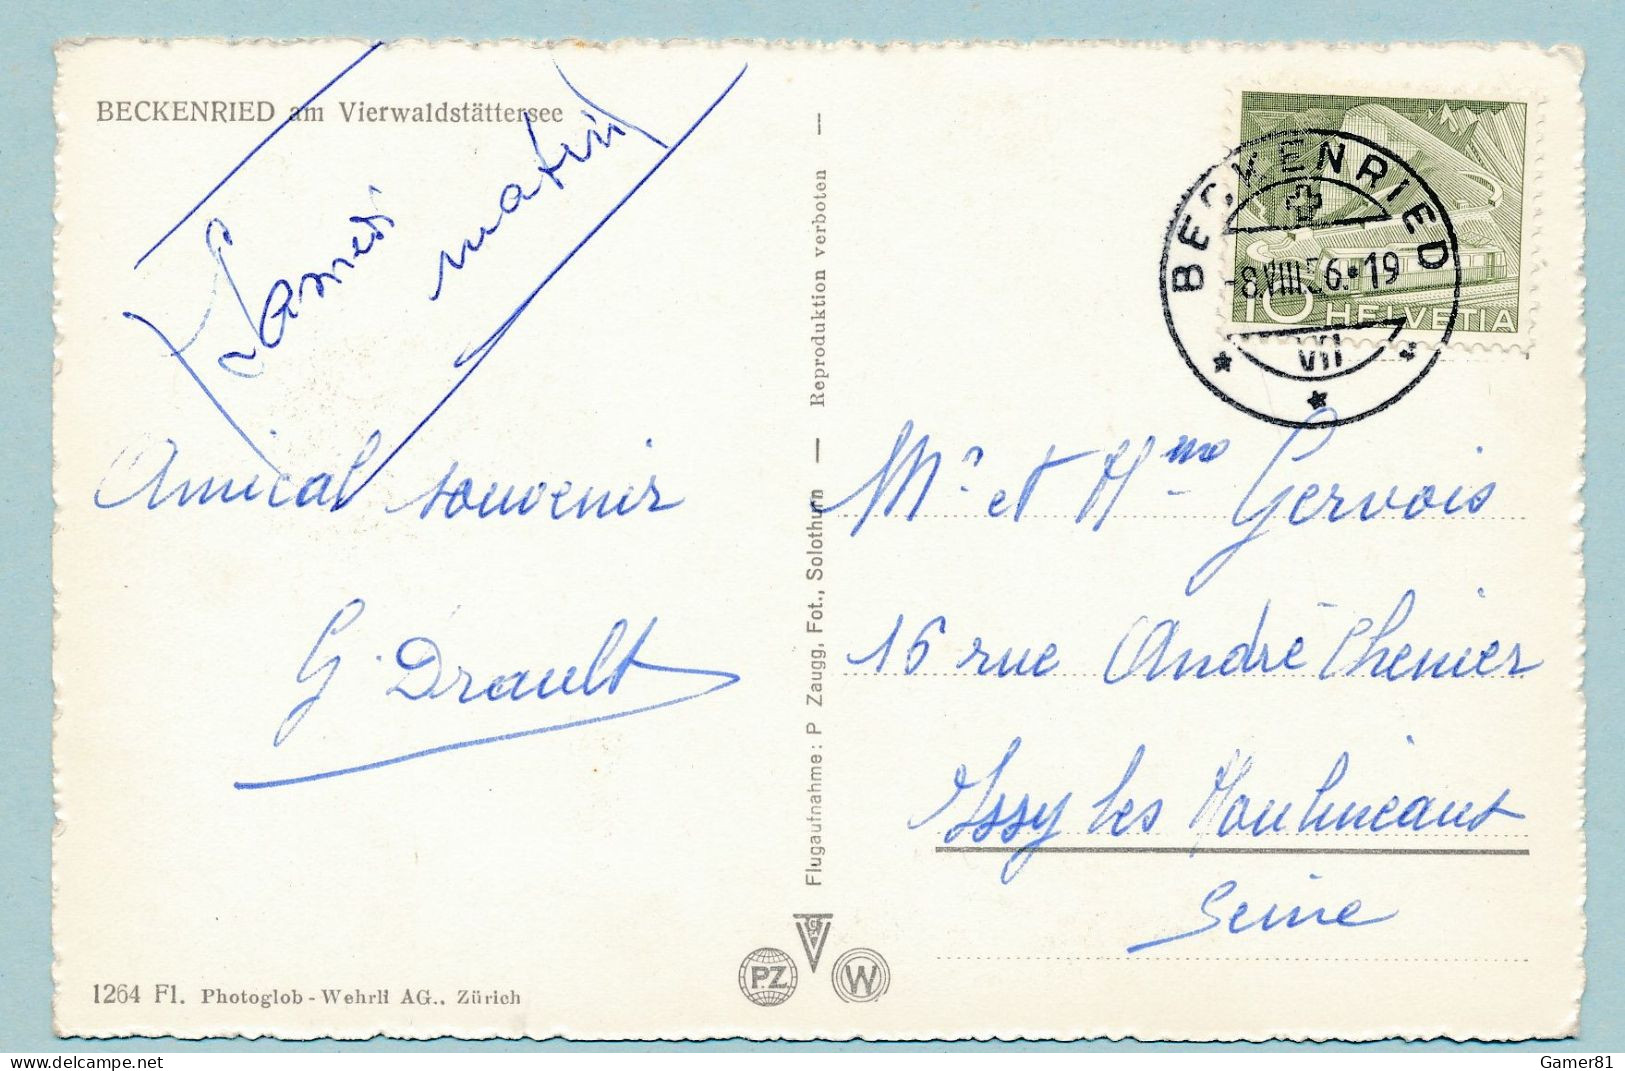 BECKENRIED am Vierwaldstättersee
Samedi
matin
Amical souvenir
G. Drault
1264 Fl. Photoglob-Wehrli AG., Zürich
Flugaufnahme: P Zaugg, Fot., Solothurn — Reproduktion verboten —
PZ
W
BECKENRIED
-8.VIII.56.•19
VII
10 HELVETIA
Mr et Mme Gervois
16 rue André Chenier
Issy les Moulineaux
Seine
Gamer81